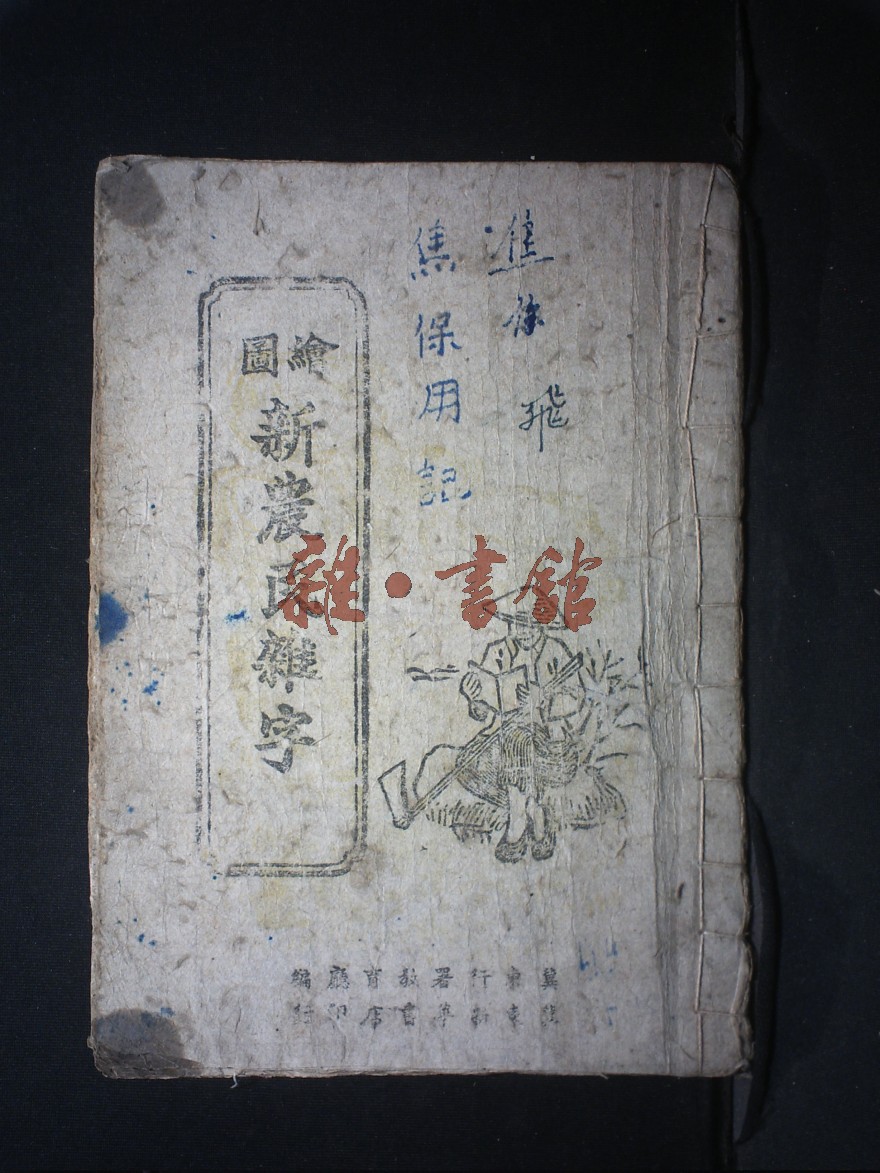 飛
焦保用記
繪圖
新農民雜字
雜·書館
冀東行署教育廳編
冀東新華書店印行